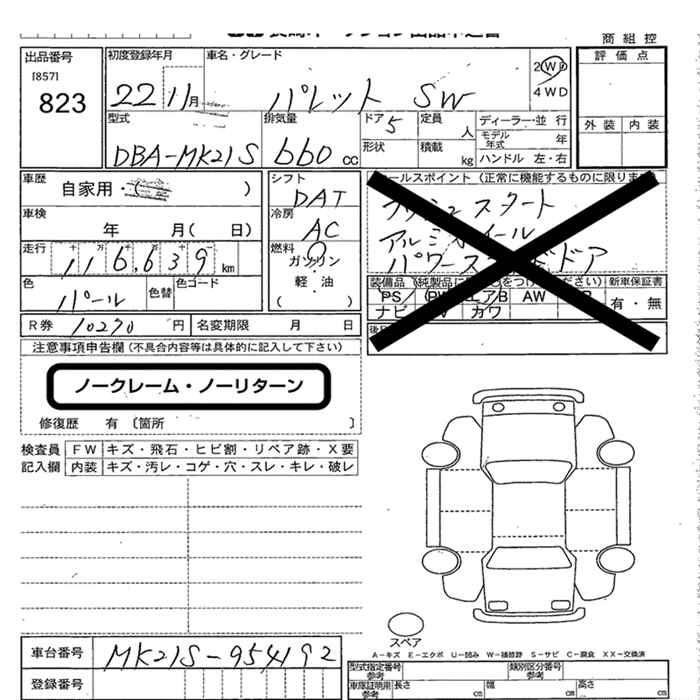 商 組 控
出品番号
[857]
823
初度登録年月
22 11月
車名・グレード
パレット SW
2WD
4WD
評 価 点
外 装 内 装
型式
DBA-MK21S
排気量
660 cc
ドア 5
形状
定員 人
積載 kg
ディーラー・並 行
モデル年式 年
ハンドル 左・右
車歴
自家用・
車検
年 月( 日)
走行
116,639 km
色
パール
色替
色コード
シフト
DAT
冷房
AC
燃料
ガソリン
軽 油
( )
ールスポイント (正常に機能するものに限りま
プッシュスタート
アルミホイール
パワース ドドア
装備品 (純製品に つけ ださい)
新車保証書
PS PW エアB AW
ナビ カワ
有・無
R券 10270 円
名変期限 月 日
注意事項申告欄 (不具合内容等は具体的に記入して下さい)
ノークレーム・ノーリターン
修復歴 有 〔箇所 〕
検査員
記入欄
FW キズ・飛石・ヒビ割・リペア跡・X要
内装 キズ・汚レ・コゲ・穴・スレ・キレ・破レ
スペア
A－キズ E－エクボ U－凹み W－補修跡 S－サビ C－腐食 XX－交換済
車台番号
MK21S-954192
登録番号
型式指定番号
参考
類別区分番号
参考
車庫証明用
参考
長さ cm
幅 cm
高さ cm